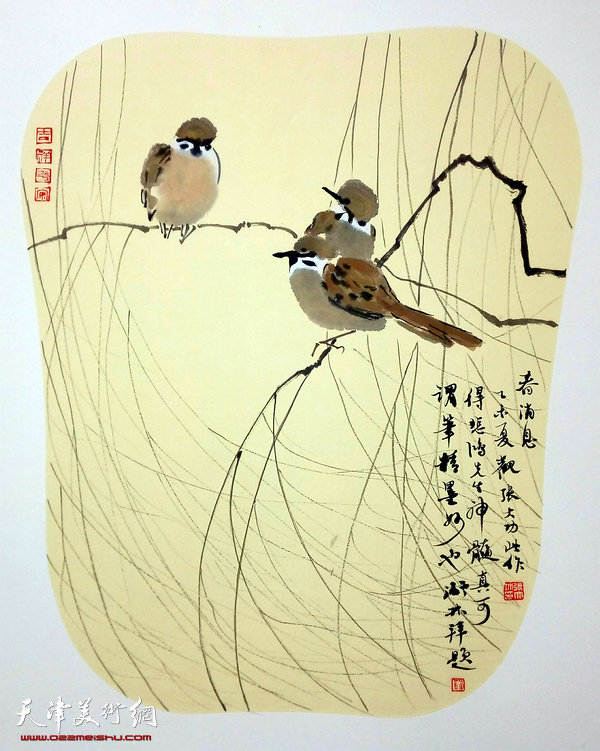 春消息
乙未夏观张大功此作
得悲鸿先生神髓真可
谓笔精墨妙也 拜题
天津美術網
www.022meishu.com